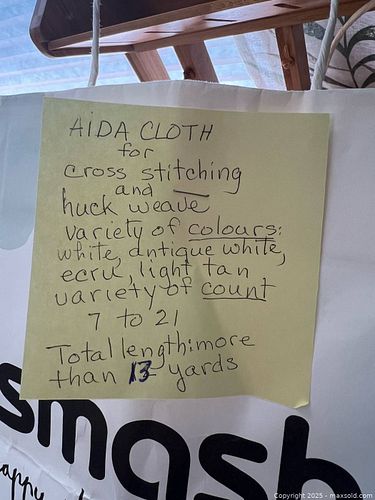 AIDA CLOTH
for
cross stitching
and
huck weave
variety of colours:
white, antique white,
ecru, light tan
variety of count
7 to 21
Total length: more
than 13 yards
smash
Copyright © 2025 - maxsold.com